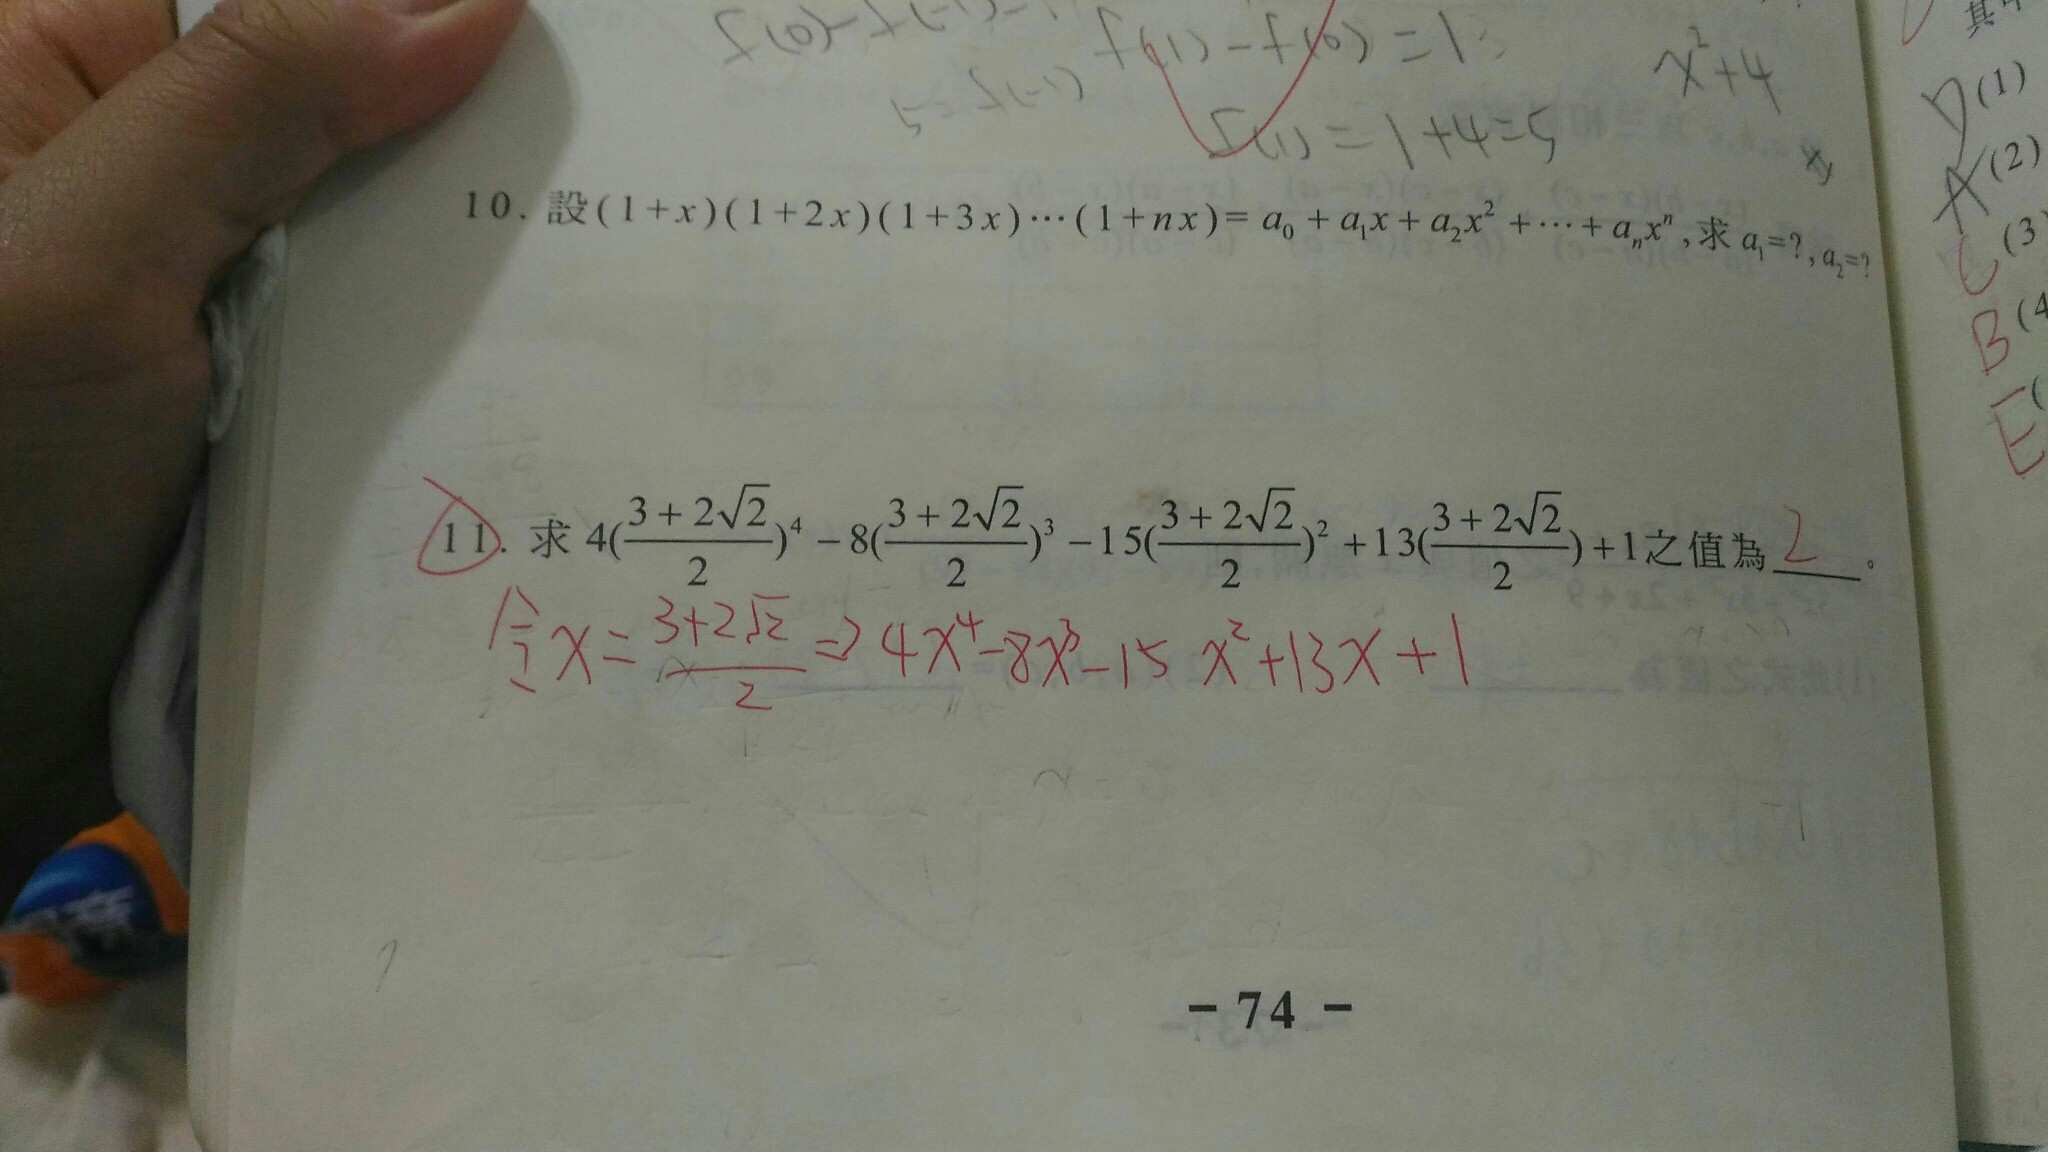 f(1)-f(0)=1
x²+4
f(-1)
f(1)=1+4=5
10. 設(1+x)(1+2x)(1+3x)⋯(1+nx)= a₀ + a₁x + a₂x² + ⋯ + aₙxⁿ , 求 a₁=? , a₂=?
11. 求 4(\frac{3+2√2}{2})⁴ −8(\frac{3+2√2}{2})³ −15(\frac{3+2√2}{2})² +13(\frac{3+2√2}{2}) +1之值為 2 。
令 x= \frac{3+2√2}{2} ⇒ 4x⁴-8x³-15x²+13x+1
- 74 -
(1)
D
(2)
A
(3)
C
B
E